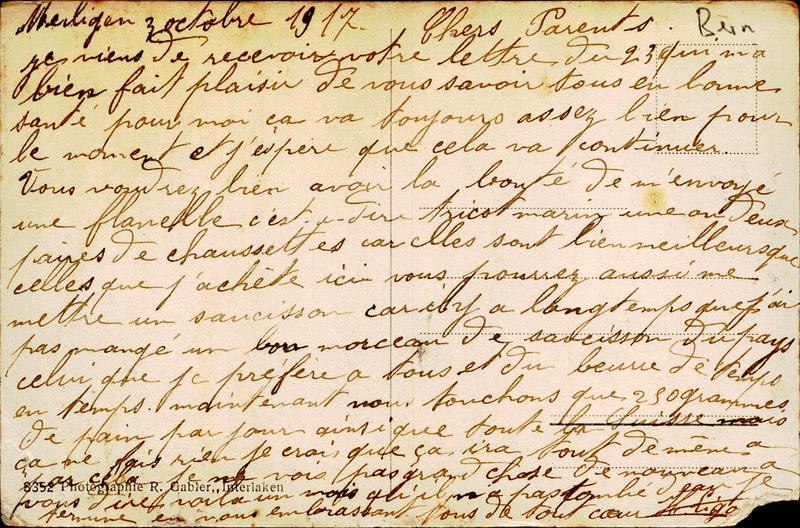 Merligen 3 octobre 1917. Chers Parents. Bern
je viens de recevoir votre lettre du 23 qui m'a
bien fait plaisir de vous savoir tous en bonne
santé pour moi ça va toujours assez bien pour
le moment et j'espère que cela va continuer.
Vous voudrez bien avoir la bonté de m'envoyé
une flanelle c'est-a-dire tricot marin une ou deux
paires de chaussettes car elles sont bien meilleurs que
celles que j'achète ici vous pourrez aussi me
mettre un saucisson car il y a longtemps que j'ai
pas mangé un bon morceau de saucisson du pays
celui que je préfère a tous et du beurre de temps
en temps. maintenant nous touchons que 250 grammes
de pain par jour ainsi que toute la Suisse mais
ça ne fais rien je crois que ça ira tout de même a
je ne vois pas grand chose de nouveau a
8352 Photographie R. Gabler, Interlaken
vous dire voila un mois qu'il n'a pas tombé d'eau je
termine en vous embrassant tous de tout cœur